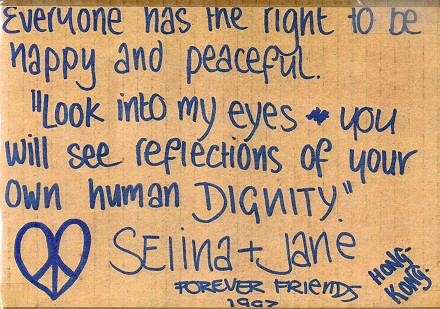 Everyone has the right to be
happy and peaceful.
"Look into my eyes you
will see reflections of your
own human DIGNITY."
Selina + Jane
FOREVER FRIENDS
HONG-
KONG.